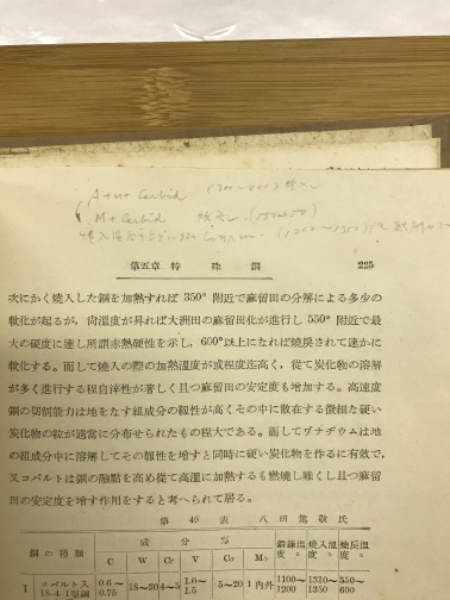 A+M+ Carbid
M+ Carbid
第五章 特 殊 鋼 225
次にかく燒入した鋼を加熱すれば 350° 附近で麻留田の分解による多少の
軟化が起るが，尙溫度が昇れば大洲田の麻留田化が進行し 550° 附近で最
大の硬度に達し所謂赤熱硬性を示し，600°以上になれば燒戾されて速かに
軟化する。而して燒入の際の加熱溫度が或程度迄高く，從て炭化物の溶解
が多く進行する程自淬性が著しく且つ麻留田の安定度も增加する。高速度
鋼の切削能力は地をなす組成分の靱性が高くその中に散在する微細な硬い
炭化物の粒が適當に分布せられたもの程大である。而してヴナヂウムは地
の組成分中に溶解してその靱性を增すと同時に硬い炭化物を作るに有效で，
又コバルトは鋼の融點を高め從て高溫に加熱するも燃燒し難くし且つ麻留
田の安定度を增す作用をすると考へられて居る。
第 49 表 八 田 篤 敬 氏
鋼 の 種 類 成 分 % 鍛鍊溫度° 燒入溫度° 燒戾溫度°
C W Cr V Co Mo
I コバルト入 18-4-1型鋼 0.6〜0.75 18〜20 4〜5 1.0〜1.5 5〜20 1內外 1100〜1200 1310〜1350 550〜600